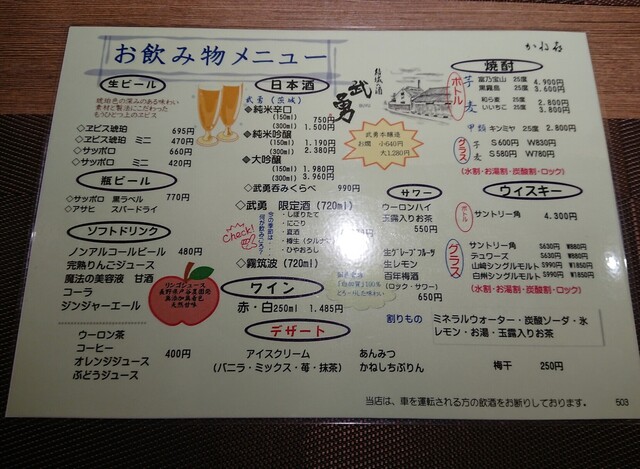 お飲み物メニュー
かね七
生ビール
琥珀色の深みのある味わい
素材と製法にこだわった
もうひとつ上のエビス
◇ヱビス琥珀 695円
◇ヱビス琥珀 ミニ 470円
◇サッポロ 660円
◇サッポロ ミニ 420円
瓶ビール
◇サッポロ 黒ラベル 770円
◇アサヒ スパードライ
ソフトドリンク
ノンアルコールビール 480円
完熟りんごジュース
魔法の美容液 甘酒
コーラ
ジンジャーエール
リンゴジュース
無添加無着色
天然甘味
ウーロン茶
コーヒー
オレンジジュース
ぶどうジュース
400円
日本酒
武勇(茨城)
◆純米辛口
(150ml) 750円
(300ml) 1.500円
◆純米吟醸
(150ml) 1.190円
(300ml) 2.380円
◆大吟醸
(150ml) 1.980円
(300ml) 3.960円
◇武勇呑みくらべ 990円
◇武勇 限定酒 (720ml)
今の季節は
何が飲めるって?
check!
・しぼりたて
・にごり
・夏酒
・樽生(タルナマ)
・ひやおろし
◇霧筑波 (720ml)
結城の酒
武勇
武勇本醸造
お燗 小640円
大1,280円
ワイン
赤・白250ml 1.485円
デザート
アイスクリーム
(バニラ・ミックス・苺・抹茶)
あんみつ
かねしちぷりん
サワー
ウーロンハイ
玉露入りお茶
550円
生グレープフルーツ
生レモン
百年梅酒
(ロック・サワー)
650円
焼酎
ボトル
芋
富乃宝山 25度 4.900円
黒霧島 25度 3.600円
麦
和ら麦 25度 2.800円
いいちこ 25度 3.800円
甲類 キンミヤ 25度 2.800円
グラス
芋 S600円 W830円
麦 S580円 W780円
(水割・お湯割・炭酸割・ロック)
ウィスキー
ボトル
サントリー角 4.300円
グラス
サントリー角 S630円 W880円
デュワーズ S630円 W880円
山崎シングルモルト S990円 W1850円
白州シングルモルト S990円 W1850円
(水割・お湯割・炭酸割・ロック)
割りもの
ミネラルウォーター・炭酸ソーダ・氷
レモン・お湯・玉露入りお茶
梅干 250円
当店は、車を運転される方の飲酒をお断りしております。
503